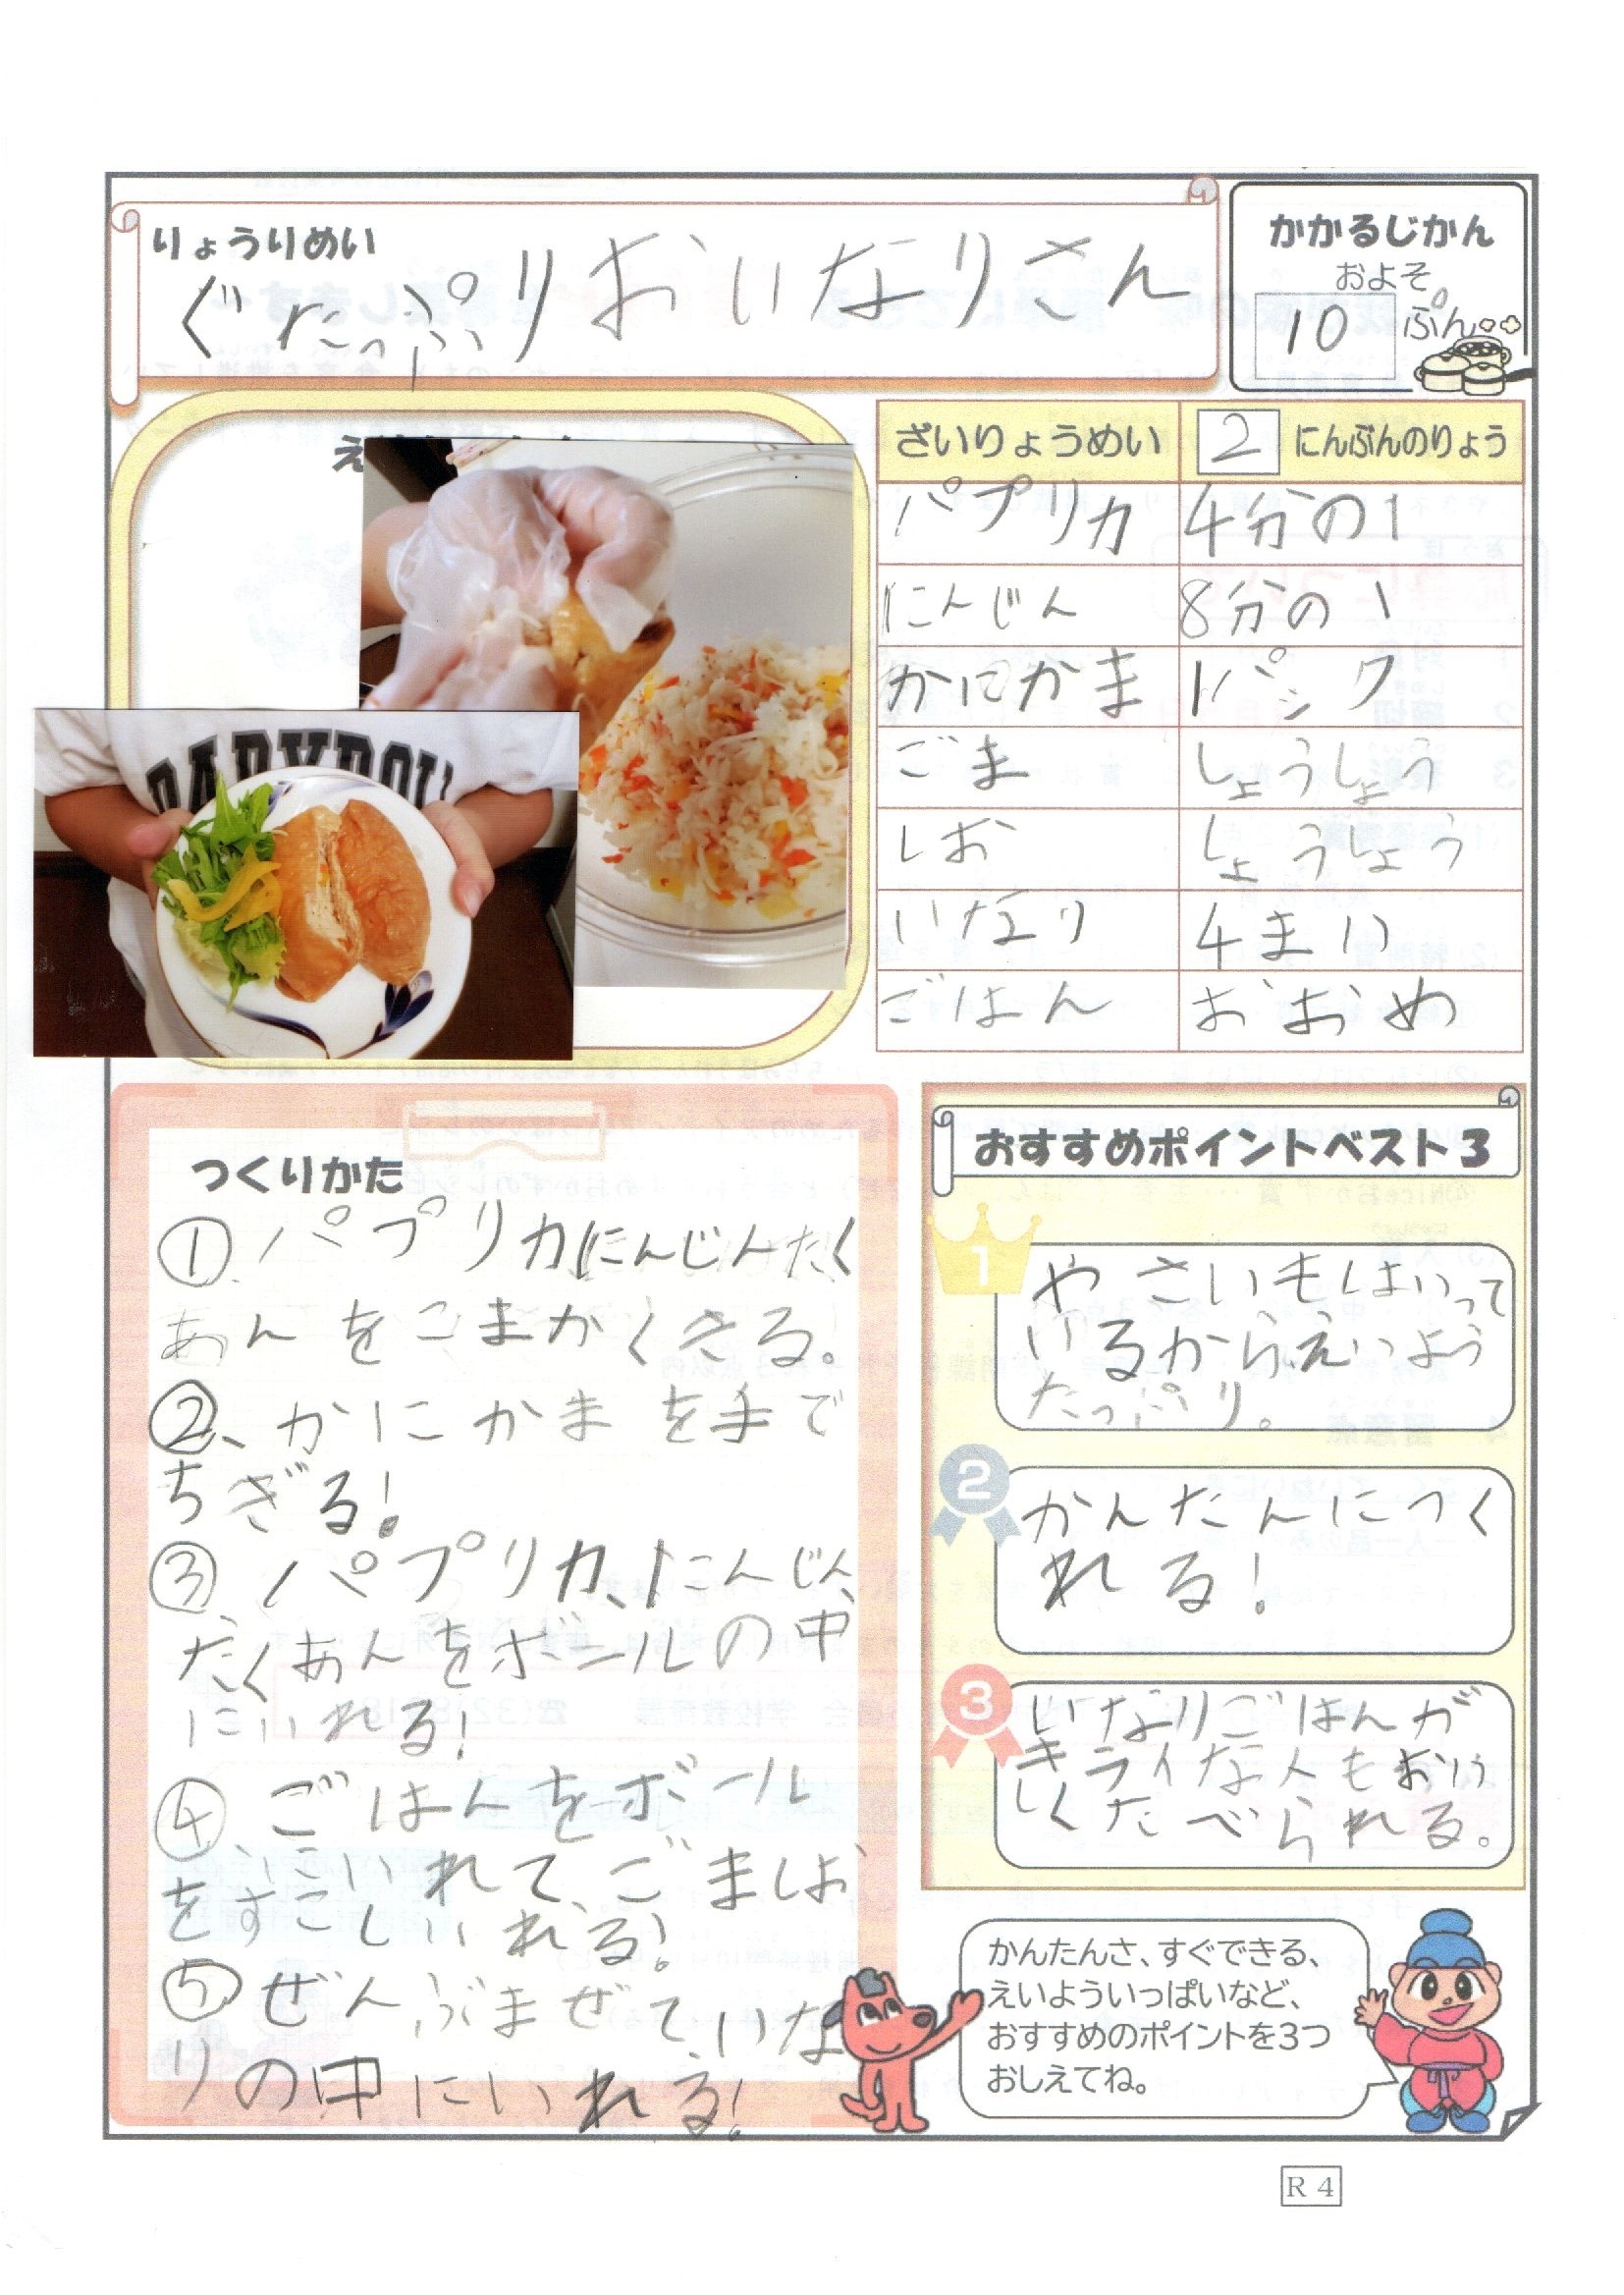 りょうりめい
ぐたっぷりおいなりさん
かかるじかん
およそ
10 ぷん
ざいりょうめい 2 にんぶんのりょう
パプリカ 4分の1
にんじん 8分の1
かにかま 1パック
ごま しょうしょう
しお しょうしょう
いなり 4まい
ごはん おおめ
つくりかた
① パプリカにんじんたく
あんをこまかくきる。
②、かにかまを手で
ちぎる!
③ パプリカ、にんじん、
たくあんをボールの中
にいれる!
④ ごはんをボール
にいれて、ごましお
をすこしいれる!
⑤ ぜんぶまぜて、いな
りの中にいれる!
おすすめポイントベスト3
1
やさいもはいって
いるからえいよう
たっぷり。
2
かんたんにつく
れる!
3
いなりごはんが
きライな人もおい
しくたべられる。
かんたんさ、すぐできる、
えいよういっぱいなど、
おすすめのポイントを3つ
おしえてね。
R 4